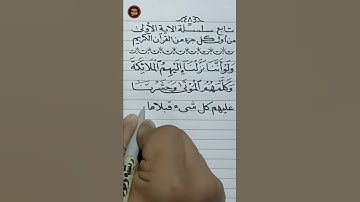 تابع سلسلة الآية الأولى
من أول كل جزء من القرآن الكريم
وَلَوْ أَنَّنَا نَزَّلْنَا إِلَيْهِمُ الْمَلَائِكَةَ
وَكَلَّمَهُمُ الْمَوْتَى وَحَشَرْنَا
عليهم كل شيء قبلا ما